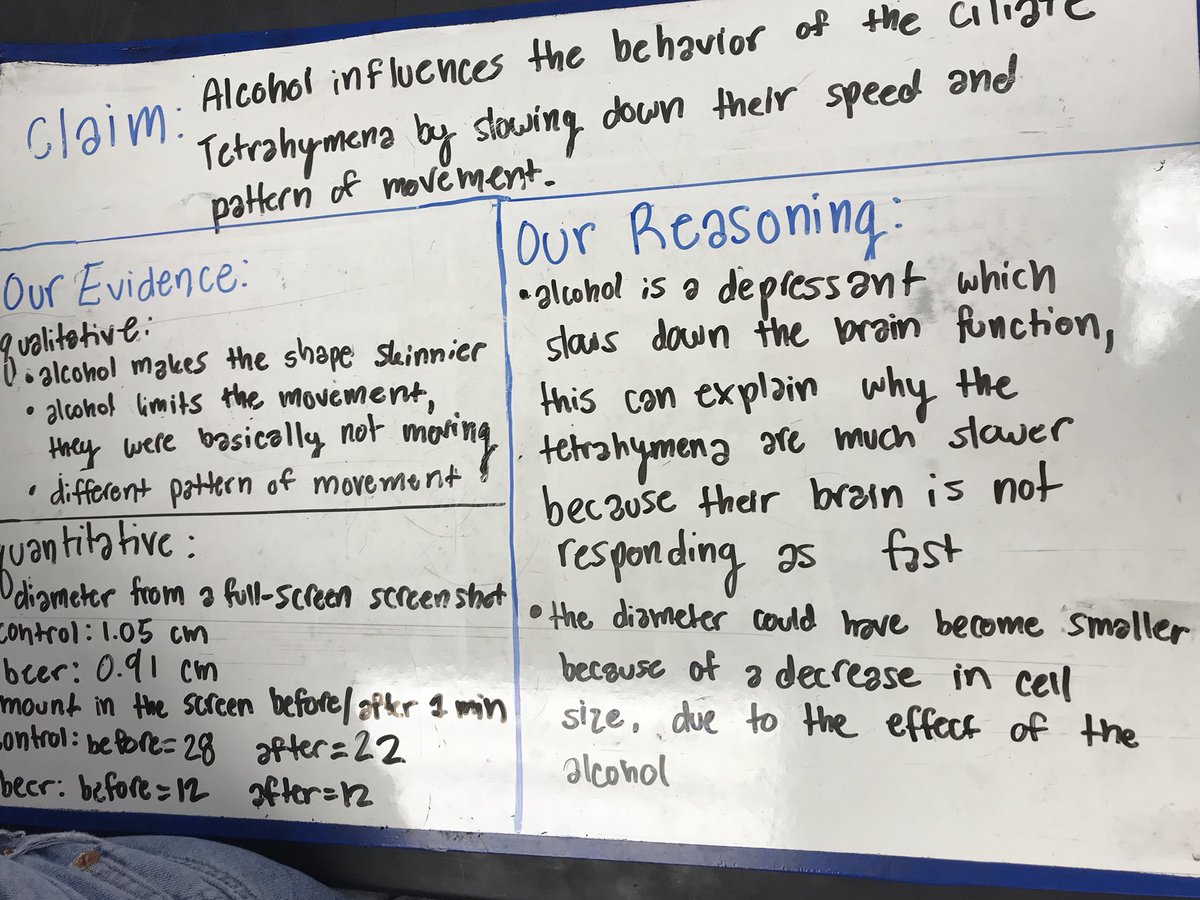 Claim: Alcohol influences the behavior of the ciliate
Tetrahymena by slowing down their speed and
pattern of movement.
Our Evidence:
qualitative:
• alcohol makes the shape skinnier
• alcohol limits the movement,
they were basically not moving
• different pattern of movement
quantitative:
diameter from a full-screen screenshot
control: 1.05 cm
beer: 0.91 cm
mount in the screen before/after 1 min
ontrol: before=28 after=22
beer: before=12 after=12
Our Reasoning:
• alcohol is a depressant which
slows down the brain function,
this can explain why the
tetrahymena are much slower
because their brain is not
responding as fast
• the diameter could have become smaller
because of a decrease in cell
size, due to the effect of the
alcohol